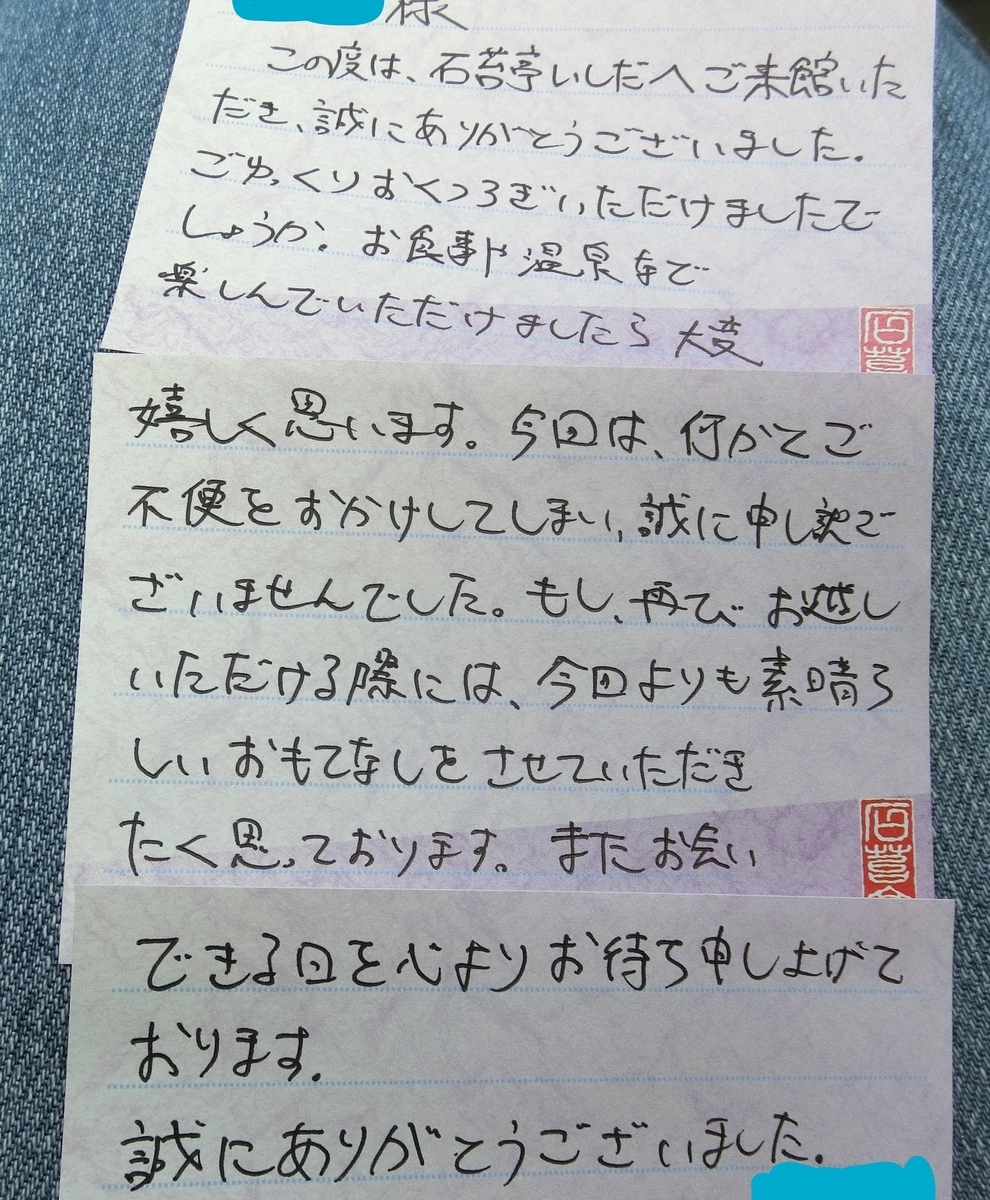 様
この度は、石苔亭いしだへご来館いた
だき、誠にありがとうございました。
ごゆっくりおくつろぎいただけましたで
しょうか？お食事や温泉などで
楽しんでいただけましたら大変
嬉しく思います。今回は、何かとご
不便をおかけしてしまい、誠に申し訳ご
ざいませんでした。もし、再びお越し
いただける際には、今回よりも素晴ら
しいおもてなしをさせていただき
たく思っております。またお会い
できる日を心よりお待ち申し上げて
おります。
誠にありがとうございました。
石苔
石苔